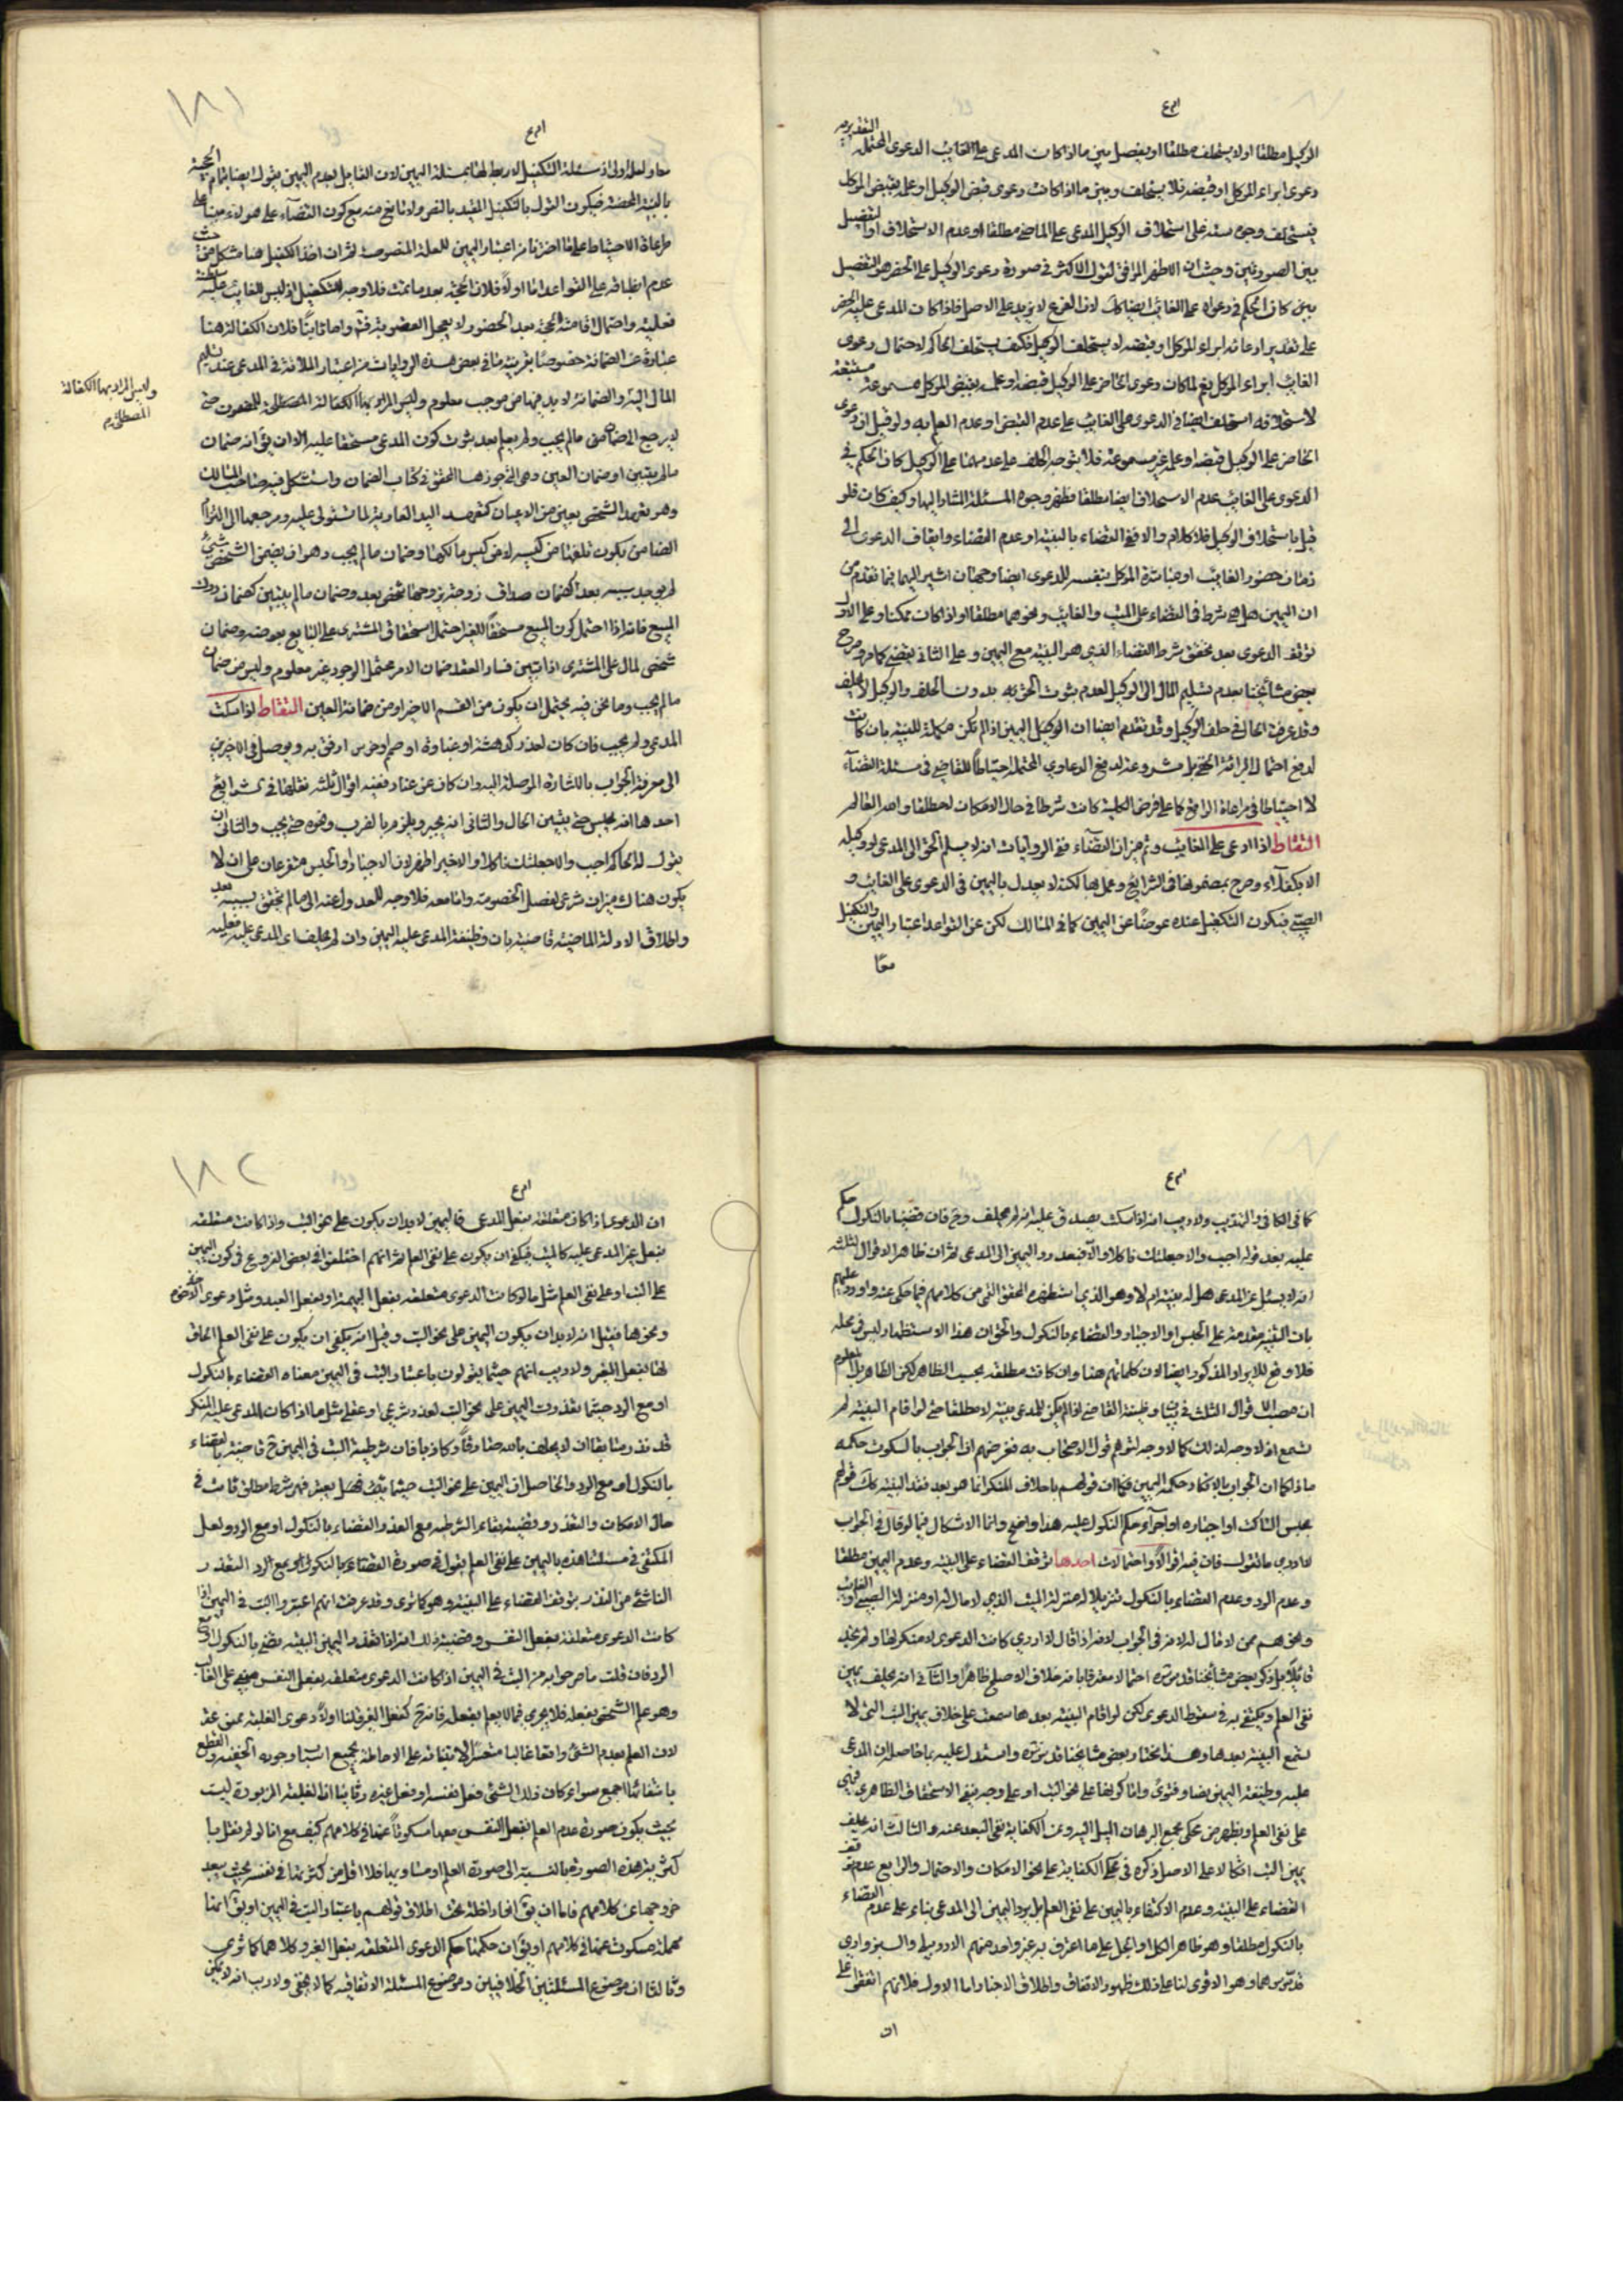 الوكيل مطلقا او لا يستحلف مطلقا او يفصل بين ما اذا كانت المدعى على الغائب الدعوى المحتملة
دعوى ابراء الموكل او قبضه فلا يستحلف وبين ما اذا كانت دعوى قبض الوكيل او علمه بقبض الموكل
فيستحلف وجوه مبنية على استحلاف الوكيل المدعى على الماضى مطلقا او عدم الاستحلاف او التفصيل
بين الصورتين وحيث ان الاظهر الموافق لقول الاكثر فى صورة دعوى الوكيل على الحضر هو التفصيل
بين كان الحكم فى دعواه على الغائب ايضا كك لان الفرع لا يزيد على الاصل فاذا كان المدعى عليه الحضر
على تقدير ادعائه ابراء الموكل او قبضه لا يستحلف الوكيل فكيف يستحلف الحاكم لاحتمال دعوى
الغائب ابراء الموكل نعم لما كان دعوى الحاضر على الوكيل قبضه او علمه بقبض الموكل مسموعة
لاستحلافه استحلف ايضا فى الدعوى على الغائب على عدم القبض او عدم العلم به ولو قيل ان دعوى
الحاضر على الوكيل قبضه او علمه غير مسموعة فلا يتوجه الحلف على عدمهما على الوكيل كان الحكم فى
الدعوى على الغائب عدم الاستحلاف ايضا مطلقا فظهر وجوه المسئلة المشار اليها وكيف كان فلو
قيل باستحلاف الوكيل فلا كلام والا ففى القضاء بالبينة او عدم القضاء وايقاف الدعوى الى
زمان حضور الغائب او مباشرة الموكل بنفسه للدعوى ايضا وجهان اشير اليهما فيما تقدم من
ان اليمين هل هى شرط فى القضاء على الميت والغائب ونحوهما مطلقا او اذا كان ممكنا وعلى الاول
توقف الدعوى بعد تحقق شرط القضاء الذى هو البينة مع اليمين وعلى الثانى يقضى كما مر وصرح
بعض مشائخنا بعدم تسليم المال الى الوكيل لعدم ثبوت الحق به بدون الحلف والوكيل لا يحلف
وقد عرفت الحال فى حلف الوكيل وقد تقدم ايضا ان الوكيل اليمين اذا لم تكن مكملة للبينة بان كانت
لدفع احتمال البرائة الحق بل مشروعة لدفع الدعاوى المحتملة احتياطا للقاضى فى مسئلة القضاء
لا احتياطا فى مراعاة الواقع كما على فرض الكلية كانت شرطا فى حال الامكان لا مطلقا والله العالم
التقاط اذا ادعى على الغائب وتم ميزان القضاء ففى الروايات انه لا يسلم الحق الى المدعى او وكيله
الا بكفلاء وصرح بمضمونها فى الشرايع وعمل بها لكنه لا يعدل باليمين فى الدعوى على الغائب و
الصبى فيكون التكفيل عنده عوضا عن اليمين كما فى المسالك لكن عن القواعد اعتبار اليمين والتكفيل
معا
١٨١
معا ولعله اولى اذ مسئلة التكفيل لا ربط لها بمسئلة اليمين لان القائل بعدم اليمين يقول ايضا بتمام الحجة
بالبينة المحضة فيكون القول بالتكفيل المقيد بالنص ولا مانع منه مع كون القضاء على صورته مبنيا على
مراعاة الاحتياط على ما اخترنا من اعتبار اليمين للعلة المنصوصة ثم ان اخذ الكفيل هنا مشكل من حيث
عدم انطباقه على القواعد اما اولا فلان الحجة بعد ما تمت فلا وجه للتكفيل اذ ليس للغائب سلطنة
فعلية واحتمال اقامته الحجة بعد الحضور لا يجعل العضو بترقبه واما ثانيا فلان الكفالة هنا
عبارة عن الضمانة خصوصا بقرينة ما فى بعض هذه الروايات من اعتبار الملائة فى المدعى عند تسليم
المال اليه والضمانة لا بد فيها من موجب معلوم وليس المراد بها الكفالة المصطلحة للمضمون حتى
وليس المراد بها الكفالة
المصطلحة م
لا يرجع الى ضمان ما لم يجب ولم يعلم بعد ثبوت كون المدعى مستحقا عليه الا ان يق انه ضمان
ما لم يتبين او ضمان العين وهى التى جوزها المحقق فى كتاب الضمان واستشكل فيه صاحب المسالك
وهو تعهد الشخص بعين من الاعيان كتعهد اليد العادية لما تستولى عليه ومرجعها الى التزام
الضامن بكون تلفها من كيسه لا من كيس مالكها وضمان ما لم يجب وهو ان يضمن الشخص شىء
لم يوجد سببه بعد كضمان صداق زوجة يزوجها شخص بعد وضمان ما لم يتبين كضمان درك
المبيع فانه اذا احتمل كون المبيع مستحقا للغير احتمل استحقاق المشترى على البايع بعوضه وضمان
شخص لمال على المشترى اذا تبين فساد العقد ضمان لامر محتمل الوجود غير معلوم وليس من ضمان
ما لم يجب وما نحن فيه يحتمل ان يكون من القسم الاخير او من ضمانة العين التقاط لو امسك
المدعى ولم يجب فان كان لعذر كدهشة او غباوة او صم او خرس ارفق به ويوصل فى الاخرين
الى معرفة الجواب بالاشارة الموصلة اليه وان كان عن عناد ففيه اقوال ثلثة نقلها فى الشرايع
احدها انه يحبس حتى يتبين الحال والثانى انه يجبر ويلزم بالضرب ونحوه حتى يجيب والثالث ان
يقول له الحاكم اجب والا جعلتك ناكلا والاخير اظهر لان الاجبار او الحبس متفرعان على ان لا
يكون هناك ميزان شرعى لفصل الخصومة وانا معه فلا وجه للعدول عنه الى ما لم يتحقق بسببه بعد
واطلاق الادلة الماضية قاضية بان وظيفة المدعى عليه اليمين وان لم يحلف اى المدعى عليه فعليه
كما فى الكافى والتهذيب ولا ريب انه اذا سكت يصدق عليه انه لم يحلف وح فان قضينا بالنكول حكم
عليه بعد قوله اجب والا جعلتك ناكلا والا فبعد رد اليمين الى المدعى ثم ان ظاهر الاقوال الثلثة
انه لا يسئل عن المدعى هل له بينة ام لا وهو الذى استظهره المحقق القمى من كلامهم فيما حكى عنه واورد عليهم
بان البينة مقدمة على الحبس او الاجبار والقضاء بالنكول والحق ان هذا الاستظهار ليس فى محله
فلا وقع للايراد المذكور ايضا لان كلماتهم هنا وان كانت مطلقة بحسب الظاهر لكن الظاهر بل المعلوم
ان مصب الاقوال الثلث فى بيان وظيفة القاضى اذا لم يكن للمدعى بينة لا مطلقا حتى لو اقام البينة لم
تسمع اذ لا وجه لذلك كما لا وجه لتوهم قول الاصحاب به فغرضهم ان الجواب بالسكوت حكمه
ماذا كما ان الجواب بالانكار حكمه اليمين فكما ان قولهم باحلاف المنكر انما هو بعد فقد البينة كك قولهم
بحبس الساكت او اجباره او اجراء حكم النكول عليه هذا واضح وانما الاشكال فيما لو قال فى الجواب
لا ادرى ما تقول فان فيه اقوالا واحتمالات احدها توقف القضاء على البينة وعدم اليمين مطلقا
وعدم الرد وعدم القضاء بالنكول تنزيلا له منزلة الميت الذى لا مال له او منزلة الصبى والغائب
ونحوهم ممن لا مقال له لانه فى الجواب لانه اذا قال لا ادرى كانت الدعوى لا منكر لها ولم نجد
قائلا بل ذكر بعض مشائخنا قدس سره احتمالا معترفا بانه خلاف الاصل ظاهرا والثانى انه يحلف يمين
نفى العلم ويكتفى به فى سقوط الدعوى لكن لو اقام البينة بعدها سمعت على خلاف يمين البت التى لا
تسمع البينة بعدها وهذا مختار بعض مشائخنا قدس سره واستدل عليه بما حاصله ان المدعى
عليه وظيفته اليمين نصا وفتوى واما كونها على نحو البت او على وجه ينفى الاستحقاق الظاهرى فهى
على نفى العلم ويظهر من محكى مجمع البرهان الميل اليه وعن الكفاية نفى البعد عنه والثالث انه يحلف
يمين البت اتكالا على الاصل ذكره فى محكى الكفاية على نحو الامكان والاحتمال والرابع عدم توقف
القضاء على البينة وعدم الاكتفاء باليمين على نفى العلم بل يرد اليمين الى المدعى بناء على عدم القضاء
بالنكول مطلقا وهو ظاهر الكل او الجل على ما اعترف به غير واحد منهم الاردبيلى والسبزوارى
قدس سرهما وهو الاقوى لنا على ذلك ظهور الاتفاق واطلاق الاخبار اما الاول فلانهم اتفقوا على
ان
١٨٢
ان الدعوى اذا كان متعلقة بفعل المدعى فاليمين لا بد ان يكون على نحو البت واذا كانت متعلقة
بفعل غير المدعى عليه كالميت فيكفى ان يكون على نفى العلم ثم انهم اختلفوا فى بعض الفروع فى كون اليمين
على البت او على نفى العلم مثل ما لو كانت الدعوى متعلقة بفعل البهيمة او بفعل العبد ومثل دعوى
ونحوها فقيل انه لا بد ان يكون اليمين على نحو البت وقيل انه يكفى ان يكون على نفى العلم الحاقا
لها بفعل الغير ولا ريب انهم حيثما يقولون باعتبار البت فى اليمين معناه القضاء بالنكول
او مع الرد حيثما تعذرت اليمين على نحو البت لعذر شرعى او عقلى مثل ما اذا كان المدعى عليه المنكر
قد نذر سابقا ان لا يحلف بالله صادقا وكاذبا فان شرطية البت فى اليمين ح قاضية بالقضاء
بالنكول او مع الرد والحاصل ان اليمين على نحو البت حيثما يعتبر فهو شرط مطلق ثابت فى
حال الامكان والتعذر وقضيته بقاء الشرطية مع العذر والقضاء بالنكول او مع الرد ولعل
المكتفى فى مسئلتنا هذه باليمين على نفى العلم يقول فى صورة القضاء بالنكول او مع الرد التعذر
الناشئ من العذر بتوقف القضاء على البينة وهو كما ترى وقد عرفت انهم اعتبروا البت فى اليمين اذا
كانت الدعوى متعلقة بفعل النفس وقضية ذلك انه اذا تعذر اليمين البينة يقضى بالنكول او مع
الرد فان قلت ما مر جوابه من البت فى اليمين اذا كانت الدعوى متعلقة بفعل النفس مبنى على الغالب
وهو علم الشخص بفعله فلا يجرى فيما لا يعلم بفعله فانه ح كفعل الغير قلنا اولا دعوى الغلبة ممنوعة
لان العلم بعدم الشىء واقعا غالبا متعسر لابتنائه على الاحاطة بجميع اسباب وجوده الخفية والقطع
بانتفائها اجمع سواء كان ذلك الشىء فعل نفسه او فعل غيره وثانيا ان الغلبة المزبورة ليست
بحيث يكون صورة عدم العلم بفعل النفس معها مسكوتا عنها فى كلامهم كيف مع انا لو لم نقل با
كثرية هذه الصورة بالنسبة الى صورة العلم او مساويها فلا اقل من كثرتها فى نفسه بحيث يبعد
خروجها عن كلامهم فاما ان يق انها داخلة تحت اطلاق قولهم باعتبار البت فى اليمين او يق انها
مهملة مسكوت عنها فى كلامهم او يق ان حكمها حكم الدعوى المتعلقة بفعل الغير وكلاهما كما ترى
وثالثا ان موضوع المسئلتين الخلافيتين وموضوع المسئلة الاتفاقية كما لا يخفى ولا ريب انه لا يمكن